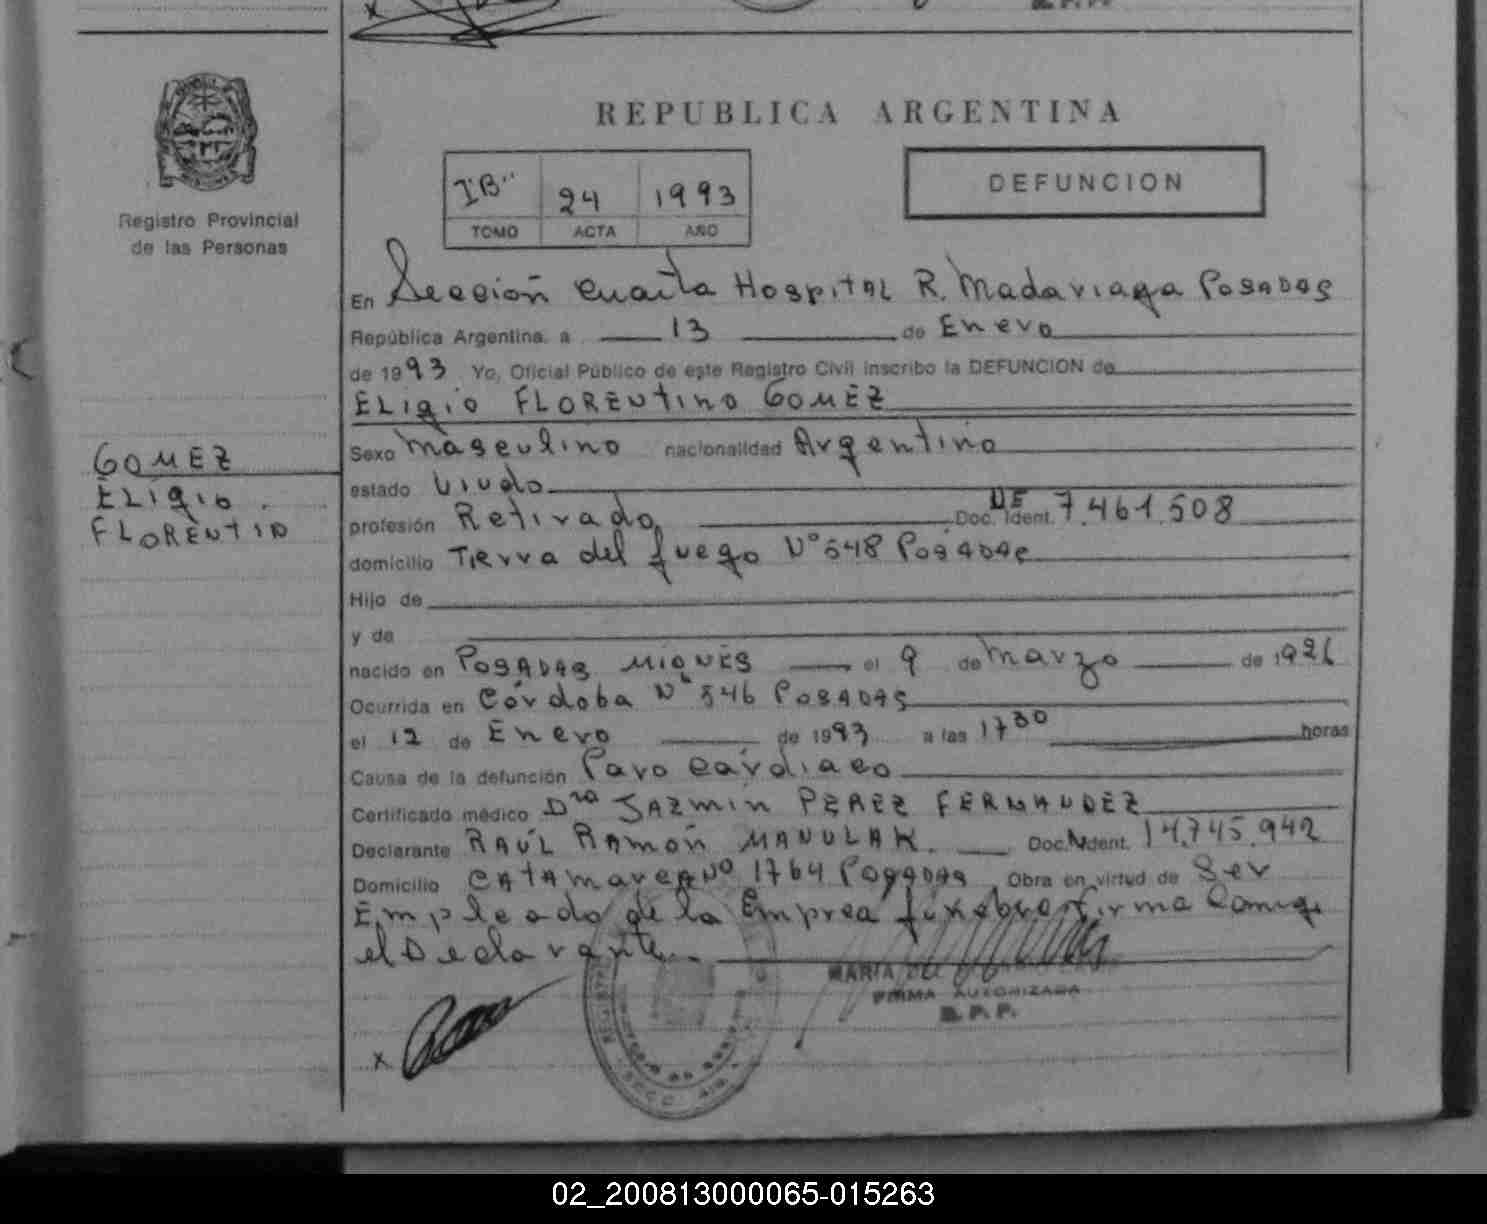 REPUBLICA ARGENTINA
Registro Provincial
de las Personas
"IB" 24 1993
TOMO ACTA AÑO
DEFUNCION
En Sección Cuarta Hospital R. Madariaga Posadas
República Argentina, a 13 de Enero
de 1993 Yo, Oficial Público de este Registro Civil inscribo la DEFUNCION de
ELigio FLORENtino GOMEZ
GOMEZ
ELigio
FLORENTIN
Sexo masculino nacionalidad Argentino
estado Viudo
profesión Retirado Doc. Ident. DE 7.461.508
domicilio Tierra del fuego Nº 548 Posadas
Hijo de
y de
nacido en Posadas Mionës el 9 de Marzo de 1926
Ocurrida en Córdoba Nº 546 Posadas
el 12 de Enero de 1993 a las 17 30 horas
Causa de la defunción Paro Cardiaco
Certificado médico Dra JAZMIN PEREZ FERNANDEZ
Declarante RAÚL RAMÓN MANULAK. Doc. Ident. 14.745.942
Domicilio CATAMARCA Nº 1764 Posadas Obra en virtud de Ser
Empleado de la Emprea fúnebre firma Conmigo
el Declarante..
MARIA
FIRMA AUTORIZADA
R.P.P.
x
02_200813000065-015263